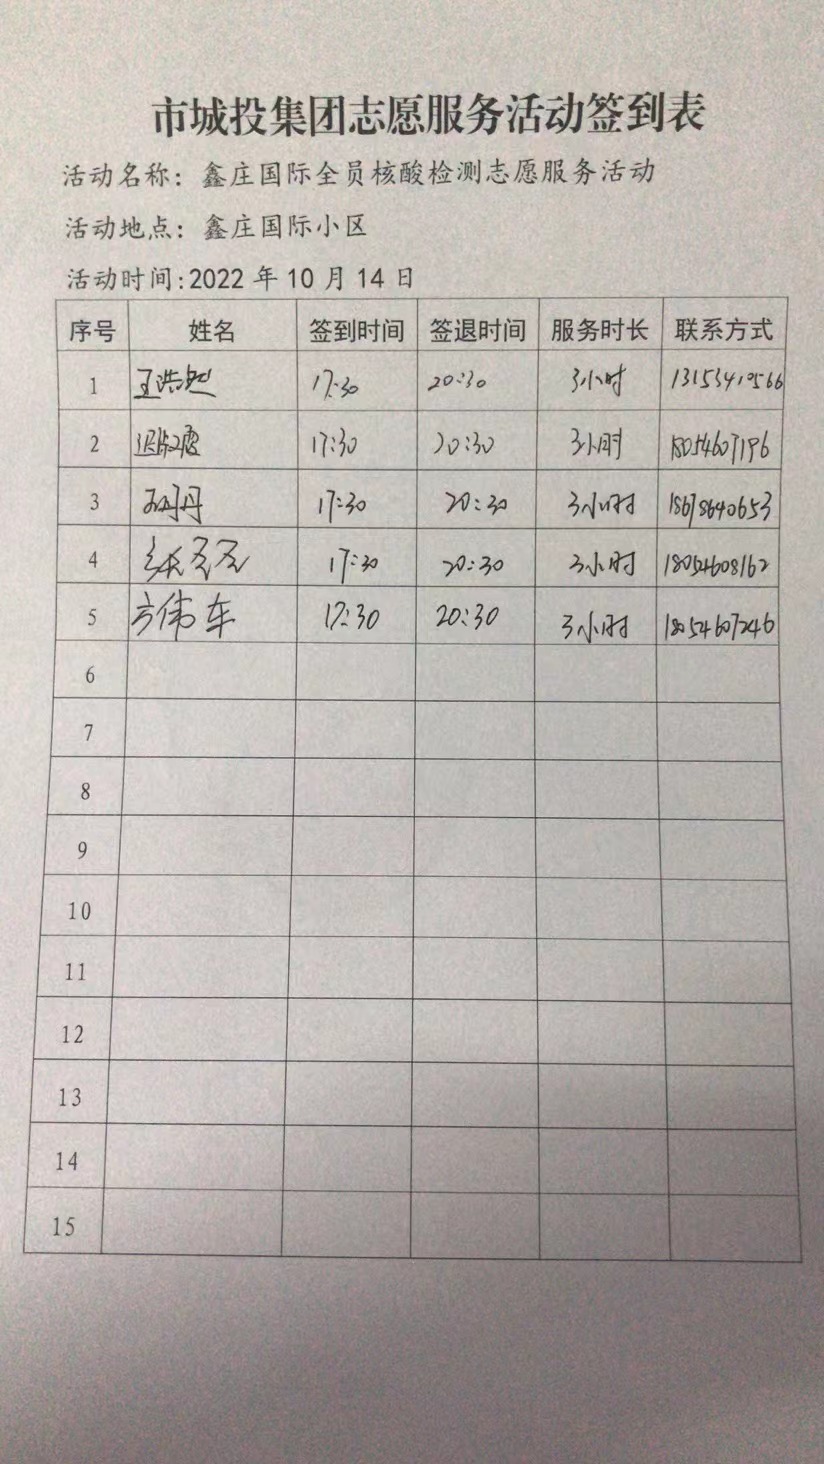 市城投集团志愿服务活动签到表
活动名称：鑫庄国际全员核酸检测志愿服务活动
活动地点：鑫庄国际小区
活动时间:2022年10月14日
序号 姓名 签到时间 签退时间 服务时长 联系方式
1 王浩 17:30 20:30 3小时 13153410566
2 17:30 20:30 3小时 18054607196
3 丹丹 17:30 20:30 3小时 18678640653
4 17:30 20:30 3小时 18054608162
5 方伟车 17:30 20:30 3小时 18054607246
6
7
8
9
10
11
12
13
14
15